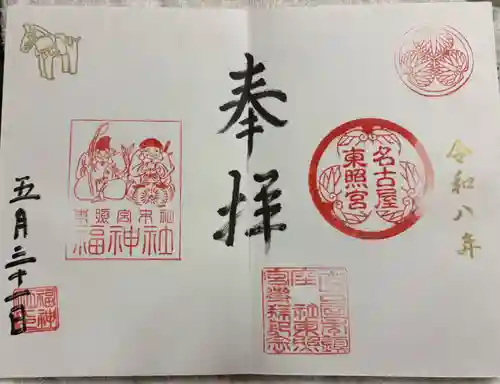 令和八年
名古屋
東照宮
奉拝
東照宮末社
福神社
五月三十一日
福神